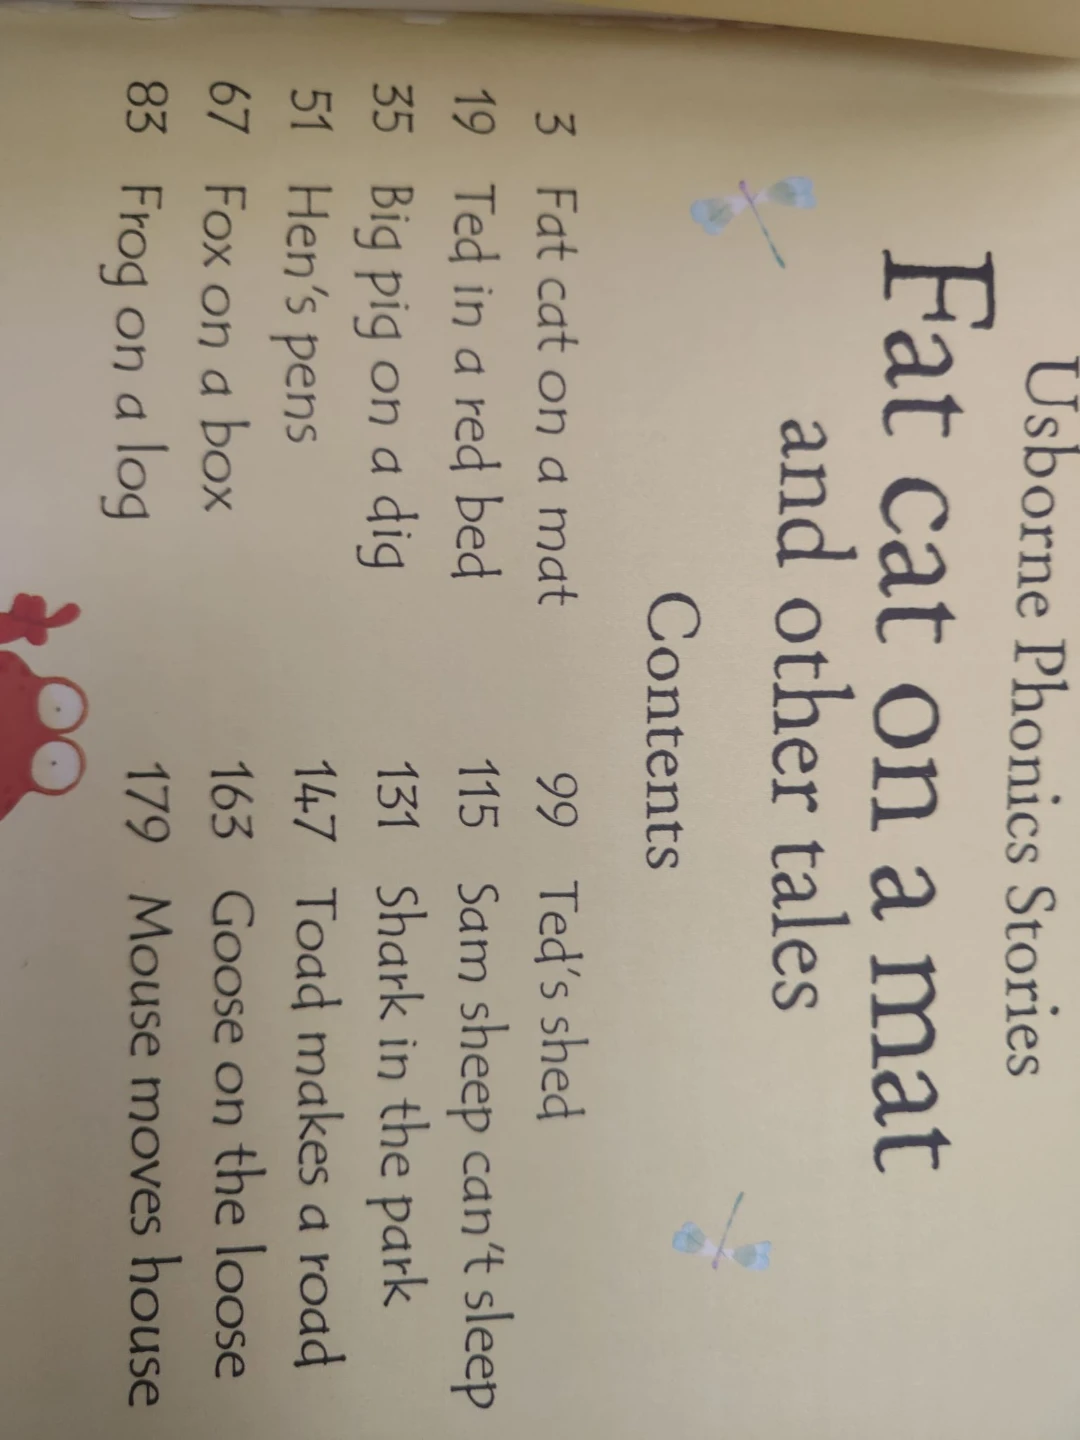 Usborne Phonics Stories
Fat cat on a mat
and other tales
Contents
3 Fat cat on a mat
19 Ted in a red bed
35 Big pig on a dig
51 Hen's pens
67 Fox on a box
83 Frog on a log
99 Ted's shed
115 Sam sheep can't sleep
131 Shark in the park
147 Toad makes a road
163 Goose on the loose
179 Mouse moves house